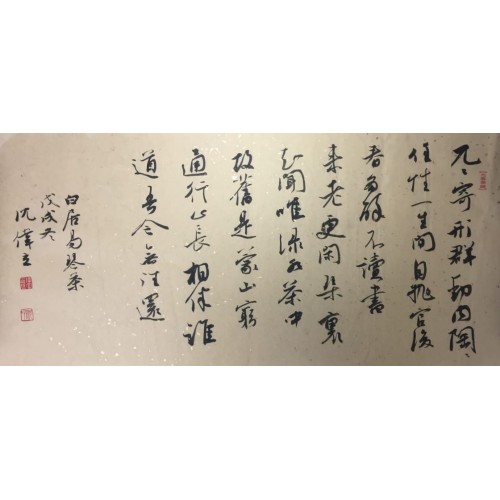 兀〻寄形群動内陶〻
任性一生間自抛官後
春多醉不讀書
来老更閑琹裏
知聞唯渌水茶中
故舊是蒙山窮
通行止長相伴誰
道吾今無往還
白居易琴茶
戊戌冬
沈偉立